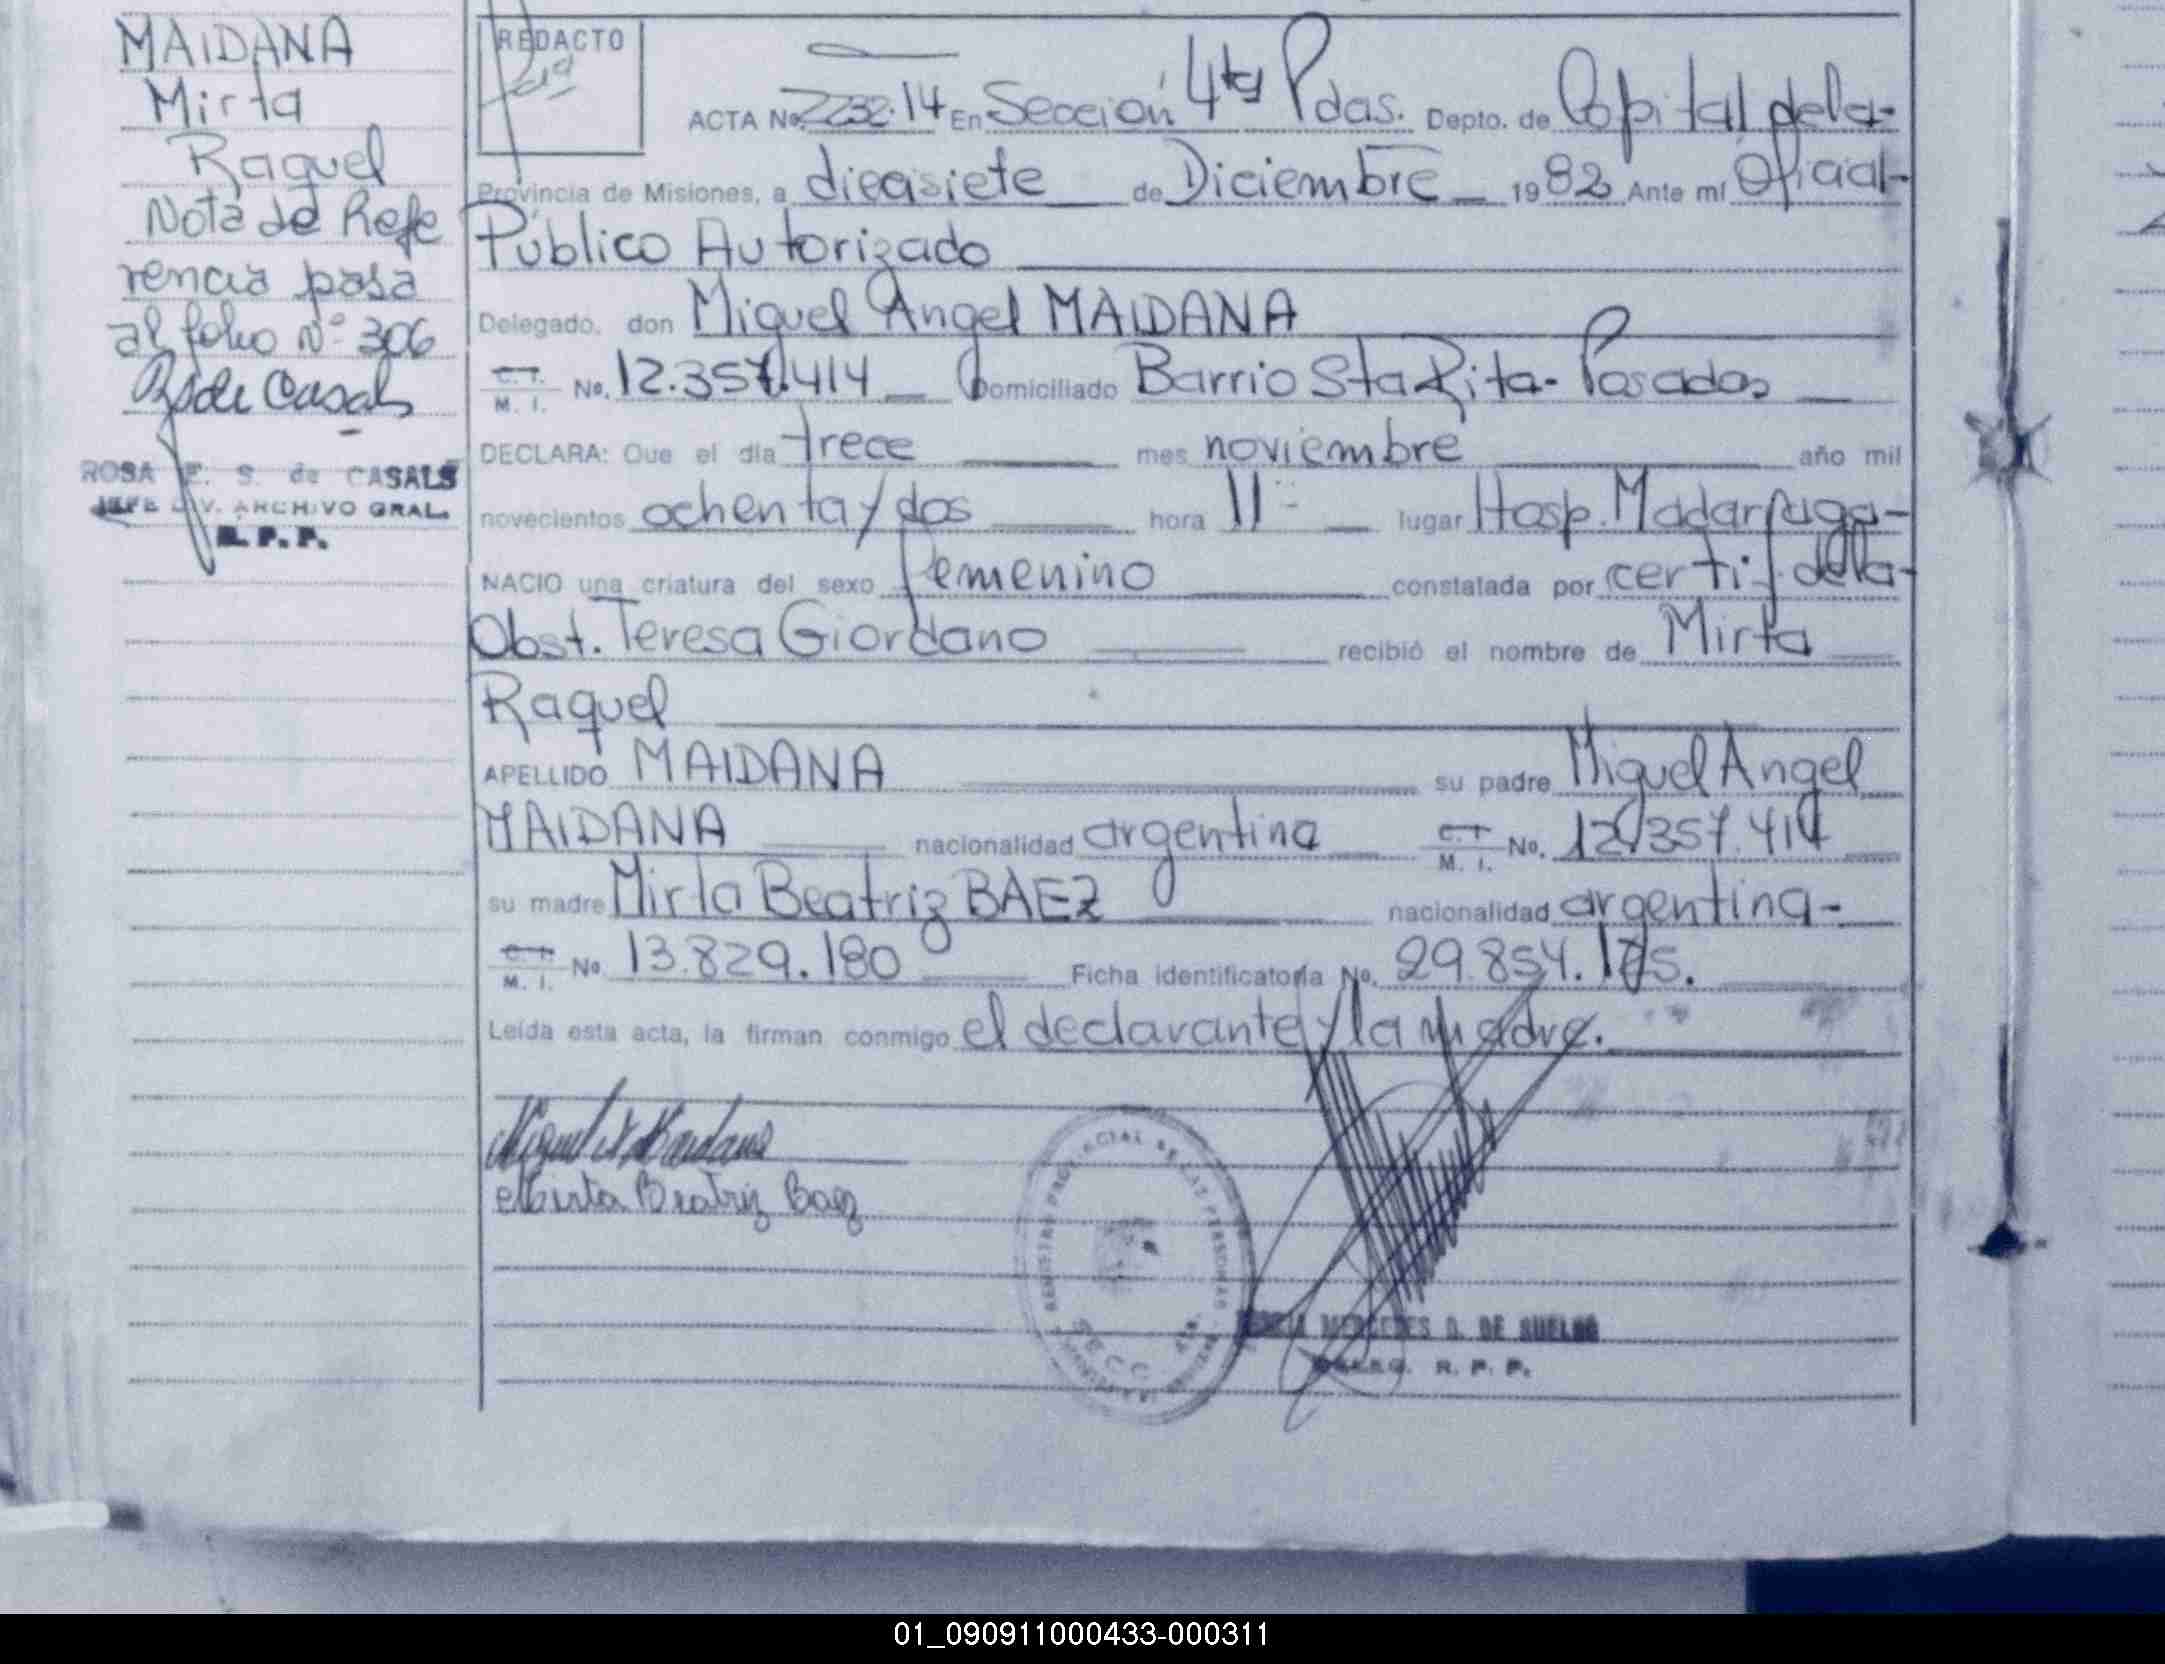 MAIDANA
Mirta
Raquel
Nota de Refe
rencia pasa
al folio Nº 306
R S de Casals
ROSA E. S. de CASALS
JEFE DIV. ARCHIVO GRAL.
R. P. P.
REDACTO
ACTA No. 2232.14 En Sección 4ta Pdas. Depto. de Capital de la-
Provincia de Misiones, a diecisiete de Diciembre 1982 Ante mí Oficial-
Público Autorizado
Delegado, don Miguel Angel MAIDANA
C. I. M. I. No. 12.357.414 Domiciliado Barrio Sta Rita - Posadas
DECLARA: Que el día trece mes noviembre año mil
novecientos ochenta y dos hora 11 - lugar Hosp. Madariaga-
NACIO una criatura del sexo femenino constatada por certif. de la-
Obst. Teresa Giordano recibió el nombre de Mirta
Raquel
APELLIDO MAIDANA su padre Miguel Angel
MAIDANA nacionalidad argentina C. I. M. I. No. 12.357.414
su madre Mirta Beatriz BAEZ nacionalidad argentina-
C. I. M. I. No. 13.829.180 Ficha identificatoria No. 29.854.175.
Leída esta acta, la firman conmigo el declarante y la madre.
Miguel A Maidana
Mirta Beatriz Baez
REGISTRO PROVINCIAL DE LAS PERSONAS
SECC. 4ta.
MERCEDES D. DE
R. P. P.
01_090911000433-000311